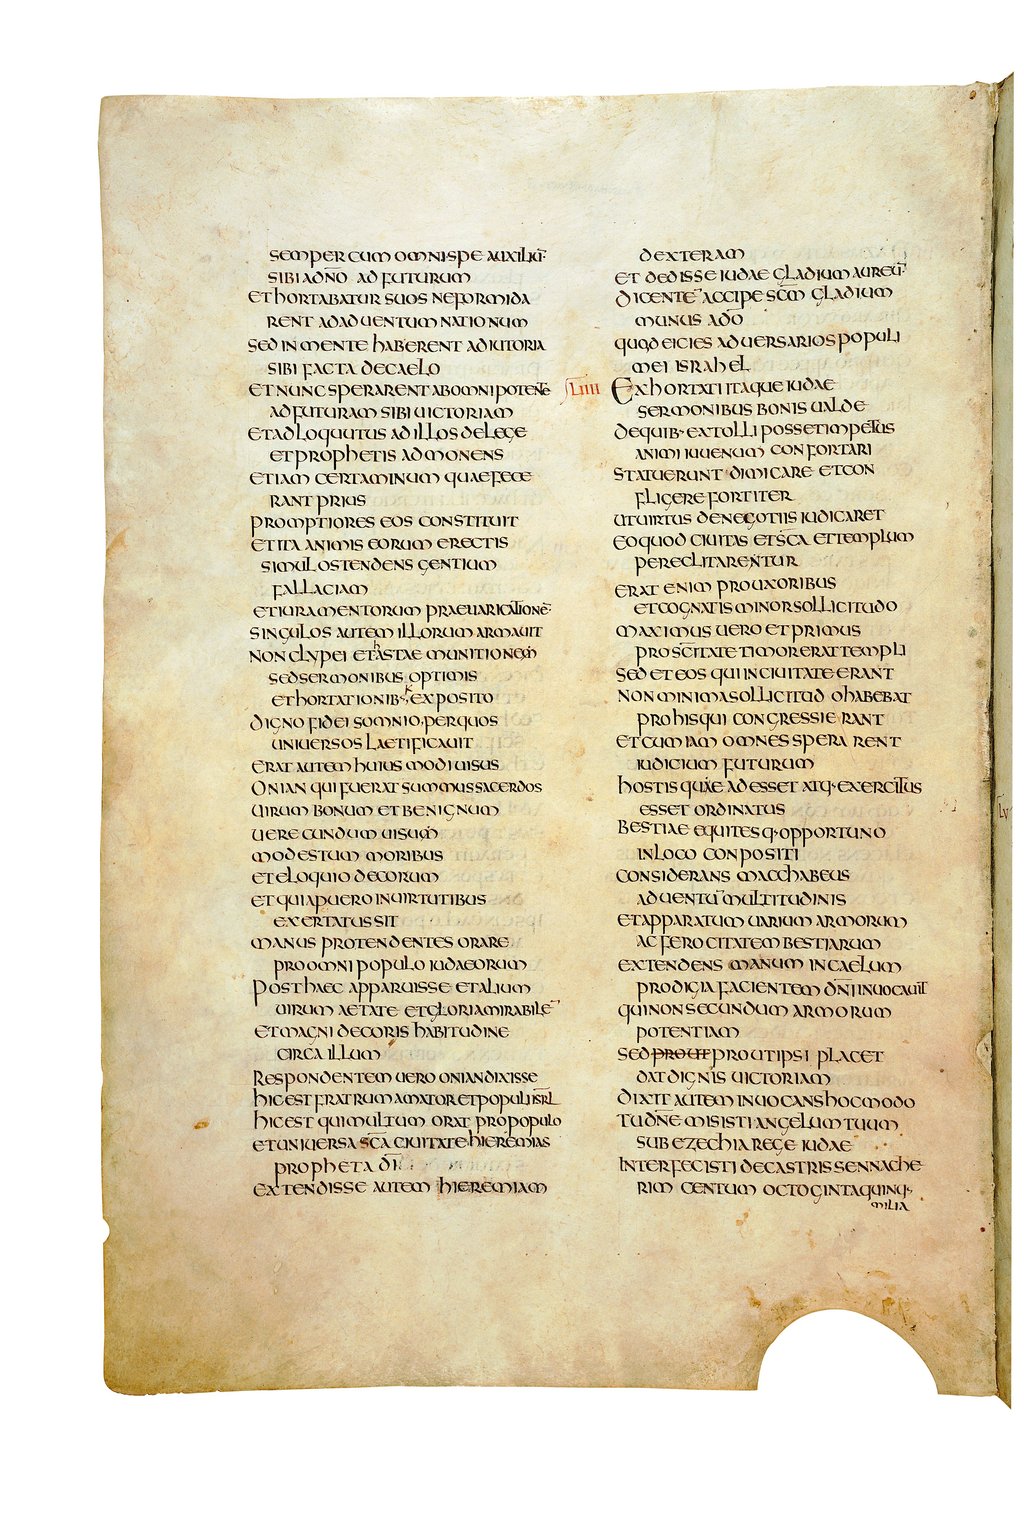 semper cum omni spe auxiliū
sibi a dn̄o ad futurum
et hortabatur suos ne formida
rent ad aduentum nationum
sed in mente haberent adiutoria
sibi facta de caelo
et nunc sperarent ab omnipotente
ad futuram sibi uictoriam
et adloquutus ad illos de lege
et prophetis admonens
etiam certaminum quae fece
rant prius
promptiores eos constituit
et ita animis eorum erectis
simul ostendens gentium
fallaciam
et iuramentorum praeuaricationē
singulos autem illorum armauit
non clypei et hastae munitionem
sed sermonibus optimis
et hortationib· exposito
digno fidei somnio per quos
uniuersos laetificauit
erat autem huiusmodi uisus
Onian qui fuerat summus sacerdos
uirum bonum et benignum
uerecundum uisum
modestum moribus
et eloquio decorum
et qui a puero in uirtutibus
exertatus sit
manus protendentes orare
pro omni populo iudaeorum
Post haec apparuisse et alium
uirum aetate et gloria mirabilē
et magni decoris habitudine
circa illum
Respondentem uero onian dixisse
hic est fratrum amator et populi isrl
hic est qui multum orat pro populo
et uniuersa sc̄a ciuitate hieremias
propheta dī
extendisse autem hieremiam
dexteram
et dedisse iudae gladium aureū
dicente accipe sc̄m gladium
munus a dō
quod eicies aduersarios populi
mei israhel
Liiii Exhortati itaque iudae
sermonibus bonis ualde
de quib· extolli posset impetus
animi iuuenum confortari
statuerunt dimicare et con
fligere fortiter
ut uirtus de negotiis iudicaret
eo quod ciuitas et sc̄a et templum
pereclitarentur
erat enim pro uxoribus
et cognatis minor sollicitudo
maximus uero et primus
pro scitate timor erat templi
sed et eos qui in ciuitate erant
non minima sollicitudo habebat
pro his qui congressi erant
et cum iam omnes sperarent
iudicium futurum
hostisquae adesset atq· exercitus
esset ordinatus
bestiae equitesq· opportuno
in loco conpositi
considerans macchabeus
aduentū multitudinis
et apparatum uarium armorum
ac ferocitatem bestiarum
extendens manum in caelum
prodigia facientem dn̄i inuocauit
qui non secundum armorum
potentiam
sed prout prout ipsi placet
dat dignis uictoriam
dixit autem inuocans hoc modo
Tu dn̄e misisti angelum tuum
sub ezechia rege iudae
interfecisti de castris sennache
rim centum octoginta quinq·
milia
Lv